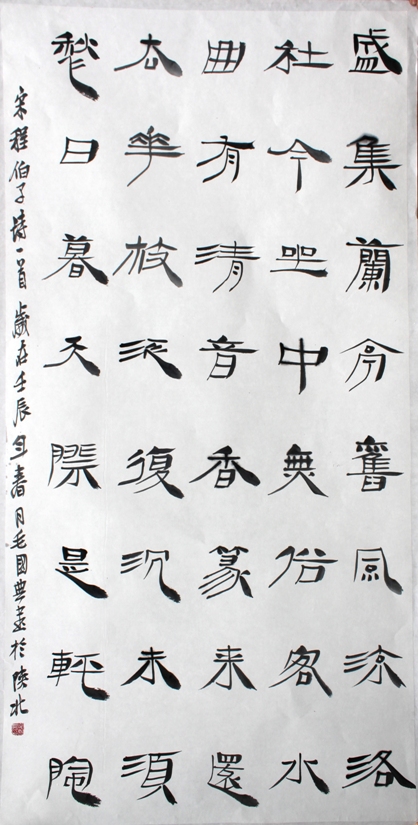 盛集蘭亭舊風流洛
社今坐中無俗客水
曲有清音香篆来還
去華枝泛復沉未須
愁日暮天際是輕陰
宋程伯子詩一首歲在壬辰年春月毛國典書於陝北